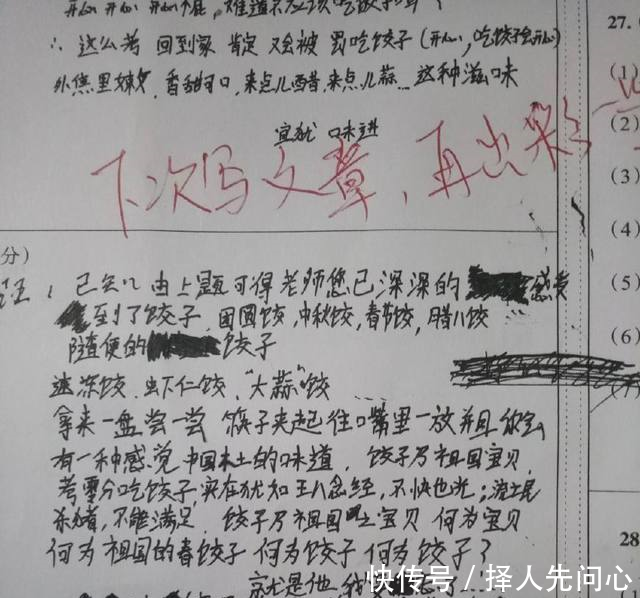 开心 开心 开心
∴ 这么考 回到家 肯定 又会被 罚吃饺子 (开心,吃饺子会开心)
外焦里嫩 香甜可口,来点儿西昔,来点儿蒜... 这种滋味
宜犹 味进
下次写文章,再出彩一些
27.
(1)
(2)
(3)
(4)
(5)
(6)
28
分)
已知 由上题可得 老师您已深深的 感觉
至了饺子,团圆饺,中秋饺,春节饺,腊八饺
随便的 饺子
速冻饺 虾仁饺,“大蒜”饺
拿来一盘尝一尝 筷子夹起往口嘴里一放并且
有一种感觉 中国本土的味道, 饺子乃祖国宝贝,
考零分吃饺子,实在犹如王八念经,不快也光;
杀猪,不能满足, 饺子乃祖国 宝贝 何为宝贝
何为祖国的春饺子 何为饺子 何为饺子?
就是他,我
快传号/择人先问心